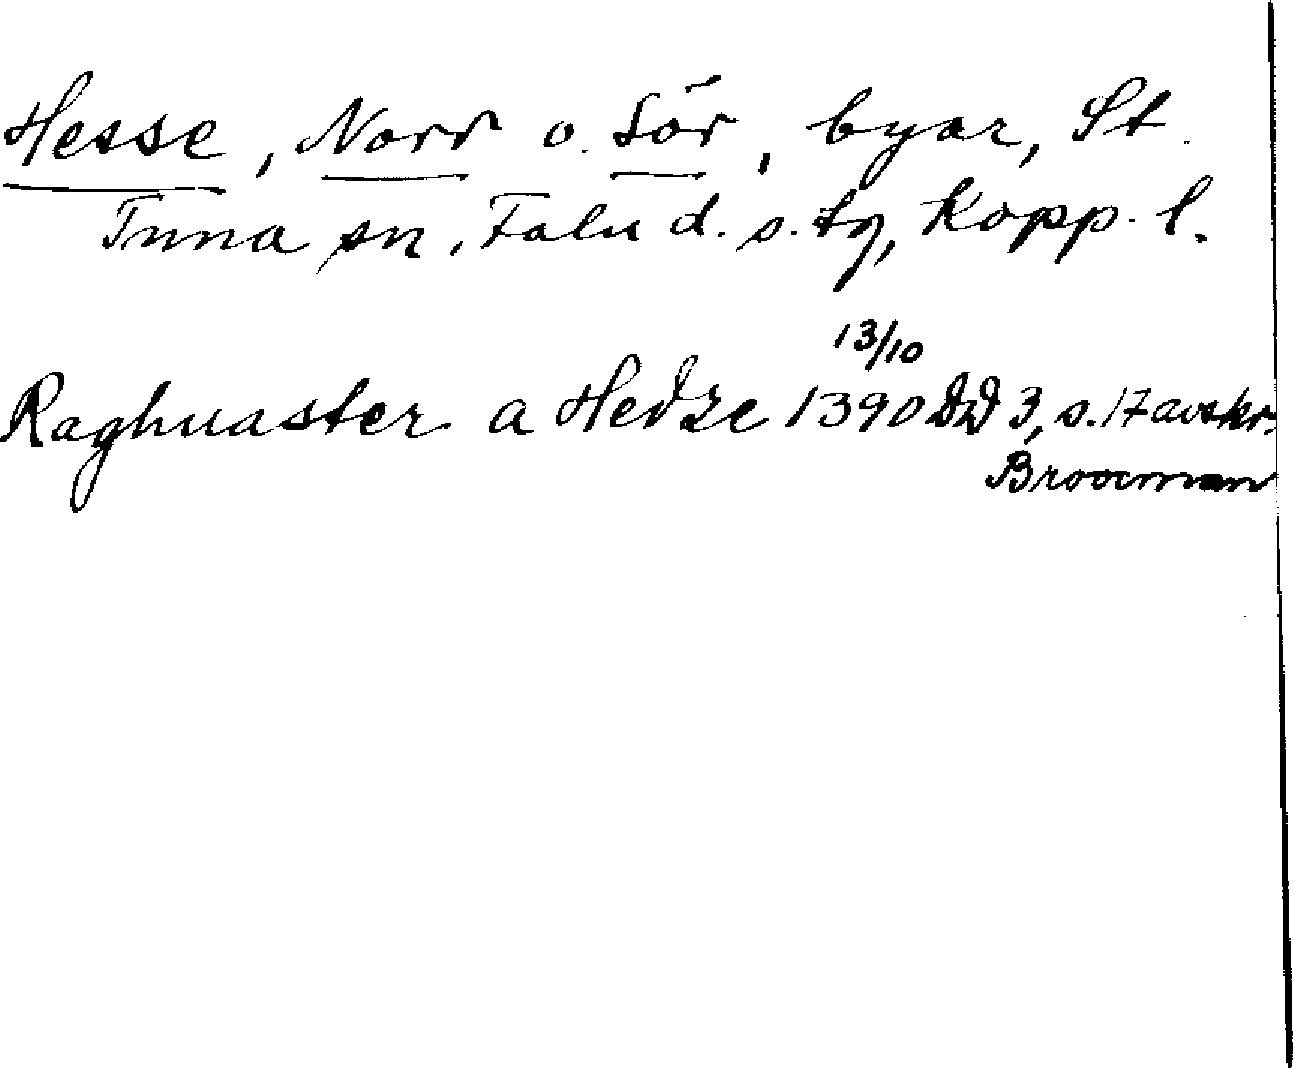 Hesse, Norr o. Sör, byar, St.
Tuna sn, Falu d. s. tg, Kopp. l.
13/10
Raghuaster a Hedze 1390 DD 3, s. 17 avskr.
Broocman